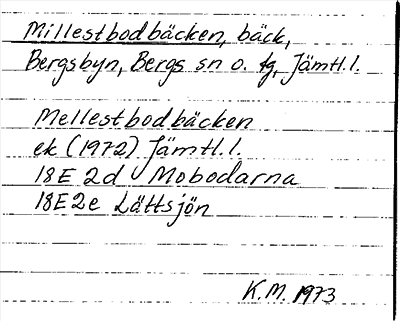 Millestbodbäcken, bäck,
Bergsbyn, Bergs sn o. tg, Jämtl. l.
Mellestbodbäcken
ek (1972) Jämtl. l.
18E 2d Mobodarna
18E 2e Lättsjön
K.M. 1973